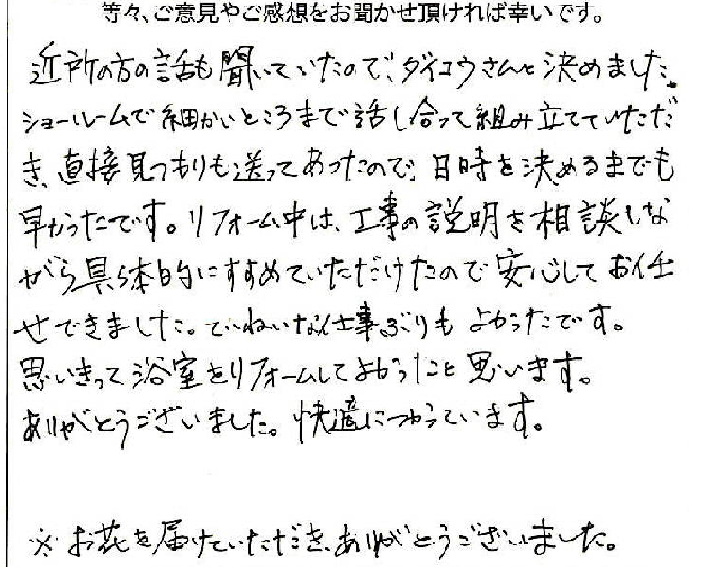 等々、ご意見やご感想をお聞かせ頂ければ幸いです。
近所の方の話も聞いていたので、ダイコウさんに決めました。
ショールームで細かいところまで話し合って組み立てていただ
き、直接見つもりも送ってあったので、日時を決めるまでも
早かったです。リフォーム中は、工事の説明を相談しな
がら具体的にすすめていただけたので安心してお任
せできました。ていねいな仕事ぶりもよかったです。
思いきって浴室をリフォームしてよかったと思います。
ありがとうございました。快適につかっています。
※お花を届けていただき、ありがとうございました。